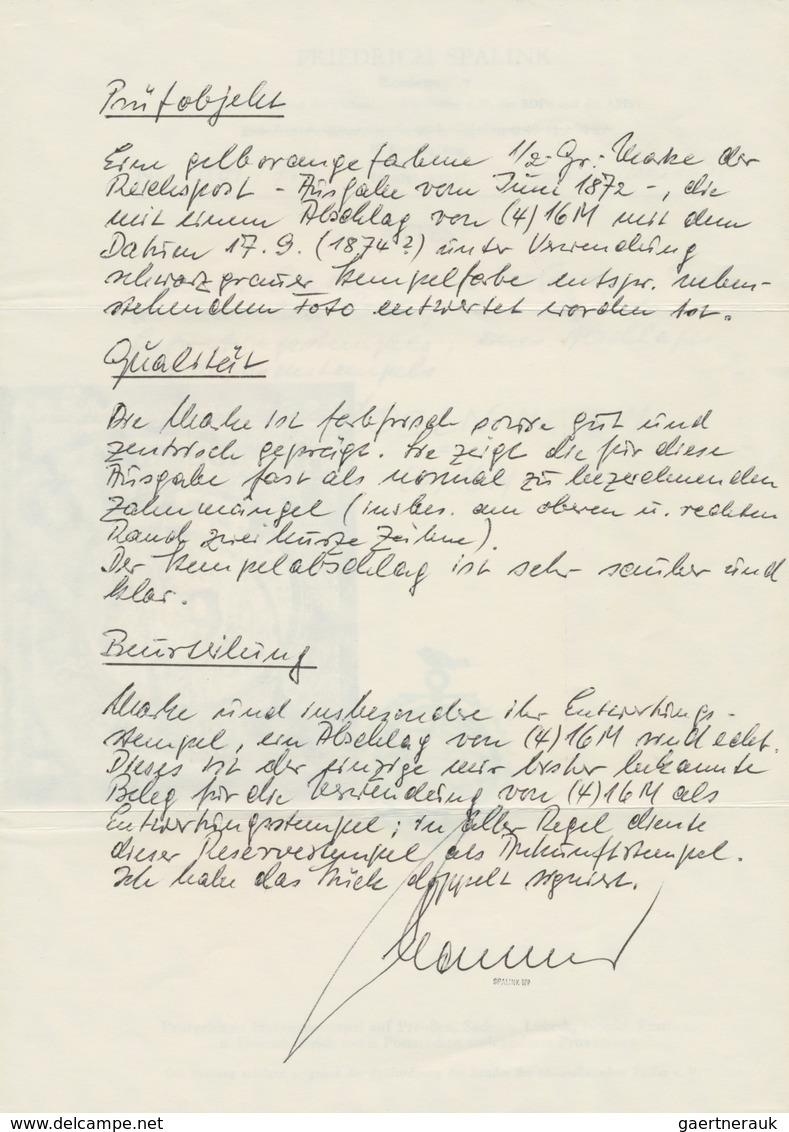 Prüfobjekt
Eine gelborangefarbene 1/2-Gr.-Marke der
Reichspost - Ausgabe vom Juni 1872 -, die
mit einem Abschlag von (4) 16 M mit dem
Datum 17.9. (1874?) unter Verwendung
schwarzgrauer Stempelfarbe entspr. neben-
stehendem Foto entwertet worden ist.
Qualität
Die Marke ist farbfrisch sowie gut und
zentrisch geprägt. Sie zeigt die für diese
Ausgabe fast als normal zu bezeichnenden
Zahnmängel (insbes. am oberen u. rechten
Rand zwei kurze Zähne).
Der Stempelabschlag ist sehr sauber und
klar.
Beurteilung
Marke und insbesondere ihr Entwertungs-
stempel, ein Abschlag von (4) 16 M sind echt.
Dieses ist der einzige mir bisher bekannte
Beleg für die Verwendung von (4) 16 M als
Entwertungsstempel; in aller Regel diente
dieser Reservestempel als Ankunftstempel.
Ich habe das Stück doppelt signiert.
SPALINK
delcampe.net
gaertnerauk